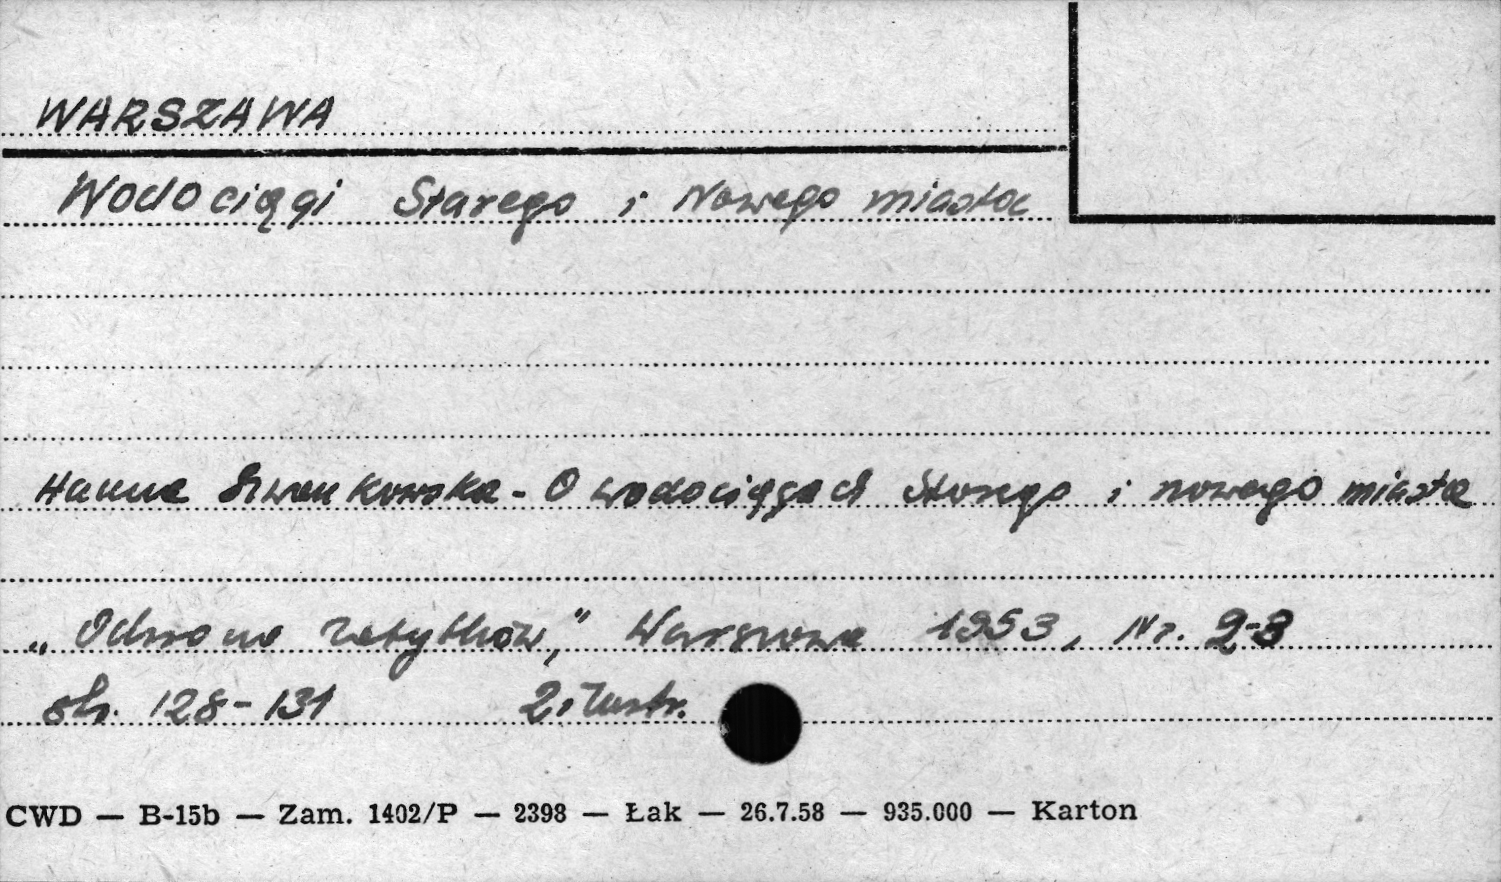 WARSZAWA
Wodociągi Starego i Nowego miasta
Hanna Szwankowska - O wodociągach Starego i nowego miasta
„Ochrona Zabytków," Warszawa 1953, Nr. 2-3
str. 128-131 2 ilustr.
CWD — B-15b — Zam. 1402/P — 2398 — Łak — 26.7.58 — 935.000 — Karton